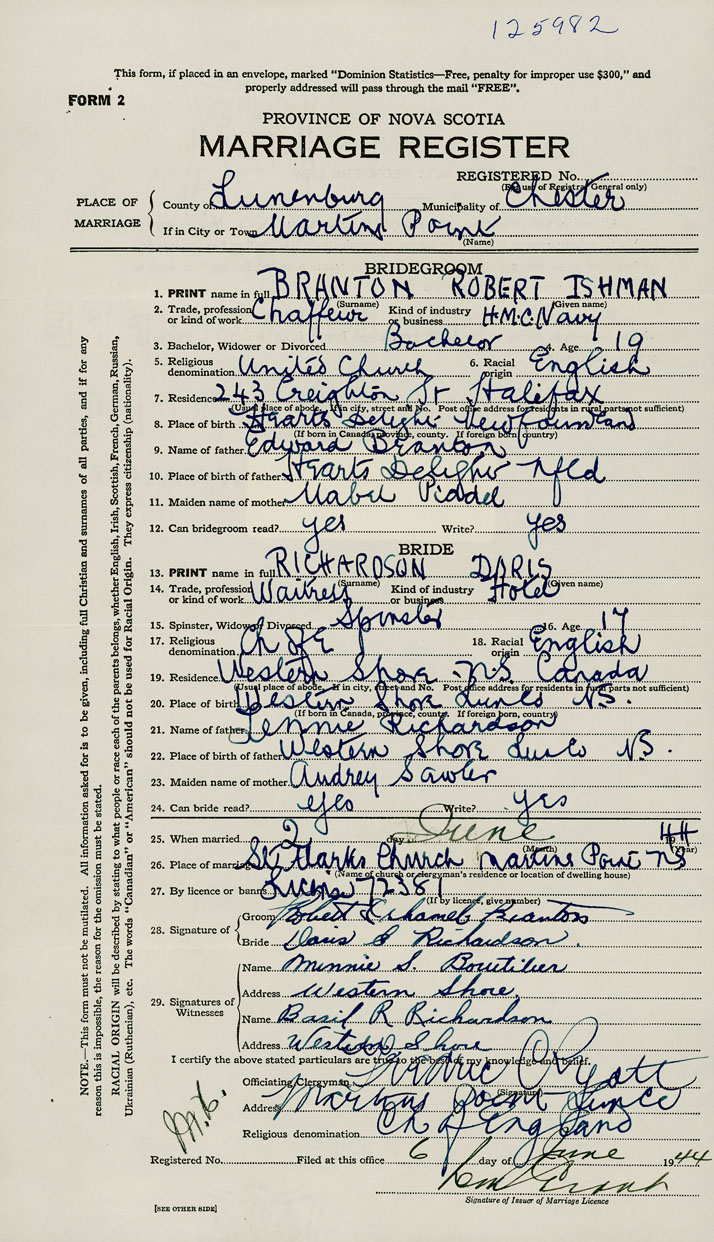 125982
This form, if placed in an envelope, marked "Dominion Statistics—Free, penalty for improper use $300," and
properly addressed will pass through the mail "FREE".
FORM 2
PROVINCE OF NOVA SCOTIA
MARRIAGE REGISTER
REGISTERED No.
(For use of Registrar General only)
PLACE OF MARRIAGE
County of Lunenburg Municipality of Chester
If in City or Town Martins Point
(Name)
BRIDEGROOM
1. PRINT name in full BRANTON ROBERT ISHMAN
(Surname) (Given name)
2. Trade, profession or kind of work Chaffeur Kind of industry or business H.M.C. Navy
3. Bachelor, Widower or Divorced Bachelor 4. Age 19
5. Religious denomination United Church 6. Racial origin English
7. Residence 243 Creighton St Halifax
(Usual place of abode. If in city, street and No. Post office address for residents in rural parts not sufficient)
8. Place of birth Hearts Delight Newfounland
(If born in Canada, province, county. If foreign born, country)
9. Name of father Edward Branton
10. Place of birth of father Hearts Delight Nfld
11. Maiden name of mother Mabel Piddel
12. Can bridegroom read? yes Write? yes
BRIDE
13. PRINT name in full RICHARDSON DORIS
(Surname) (Given name)
14. Trade, profession or kind of work Waitress Kind of industry or business Hotel
15. Spinster, Widow or Divorced Spinster 16. Age 17
17. Religious denomination Ch of E 18. Racial origin English
19. Residence Western Shore N.S. Canada
(Usual place of abode. If in city, street and No. Post office address for residents in rural parts not sufficient)
20. Place of birth Western Shore Lun Co N.S.
(If born in Canada, province, county. If foreign born, country)
21. Name of father Richardson
22. Place of birth of father Western Shore Lun Co N.S.
23. Maiden name of mother Audrey Sawler
24. Can bride read? yes Write? yes
25. When married 2 day June 1944
(Month) (Year)
26. Place of marriage St. Marks Church Martins Point NS
(Name of church or clergyman's residence or location of dwelling house)
27. By licence or banns 72381
(If by licence, give number)
28. Signature of
Groom Robert Branton
Bride Doris E Richardson.
29. Signatures of Witnesses
Name Minnie S. Boutilier
Address Western Shore.
Name Basil R Richardson
Address Western Shore
I certify the above stated particulars are true to the best of my knowledge and belief.
Officiating Clergyman
(Signature)
Address Martins Point
Religious denomination Ch of England
Registered No. Filed at this office 6 day of June 1944
Signature of Issuer of Marriage Licence
[SEE OTHER SIDE]
NOTE.—This form must not be mutilated. All information asked for is to be given, including full Christian and surnames of all parties, and if for any
reason this is impossible, the reason for the omission must be stated.
RACIAL ORIGIN will be described by stating to what people or race each of the parents belongs, whether English, Irish, Scottish, French, German, Russian,
Ukrainian (Ruthenian), etc. The words "Canadian" or "American" should not be used for Racial Origin. They express citizenship (nationality).